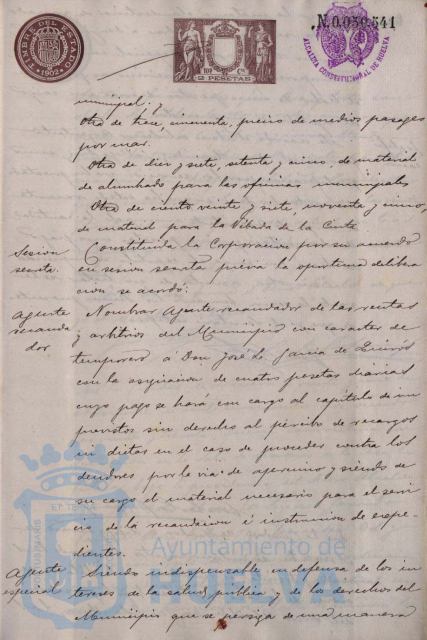 TIMBRE DEL ESTADO
1902
2 PESETAS
N.0.050.541
ALCALDIA CONSTITUCIONAL DE HUELVA
municipal.
Otra de trece, cincuenta, precio de medios pasages
por mar.
Otra de diez y siete, setenta y cinco, de material
de alumbrado para las oficinas municipales
Otra de ciento veinte y siete, noventa y cinco,
de material para la Velada de la Cinta
Sesion
secreta.
Constituida la Corporacion por su acuerdo
en sesion secreta previa la oportuna delibera
cion se acordó:
Agente
recauda
dor
Nombrar Agente recaudador de las rentas
y arbitrios del Municipio con caracter de
temporero á Don José Ja García de Quirós
con la asignacion de cuatro pesetas diarias
cuyo pago se hará con cargo al capítulo de im
previstos sin derecho al percibo de recargos
ni dietas en el caso de proceder contra los
deudores por la via de apremio y siendo de
su cargo el material necesario para el servi
cio de la recaudacion é instruccion de espe-
dientes.
Agente
especial
Siendo indispensable en defensa de los in
tereses de la salud publica y de los derechos del
Municipio que se persiga de una manera
Ayuntamiento de
HUELVA